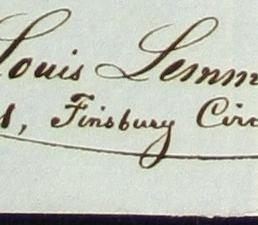 Louis Lemm
s, Finsbury Circ